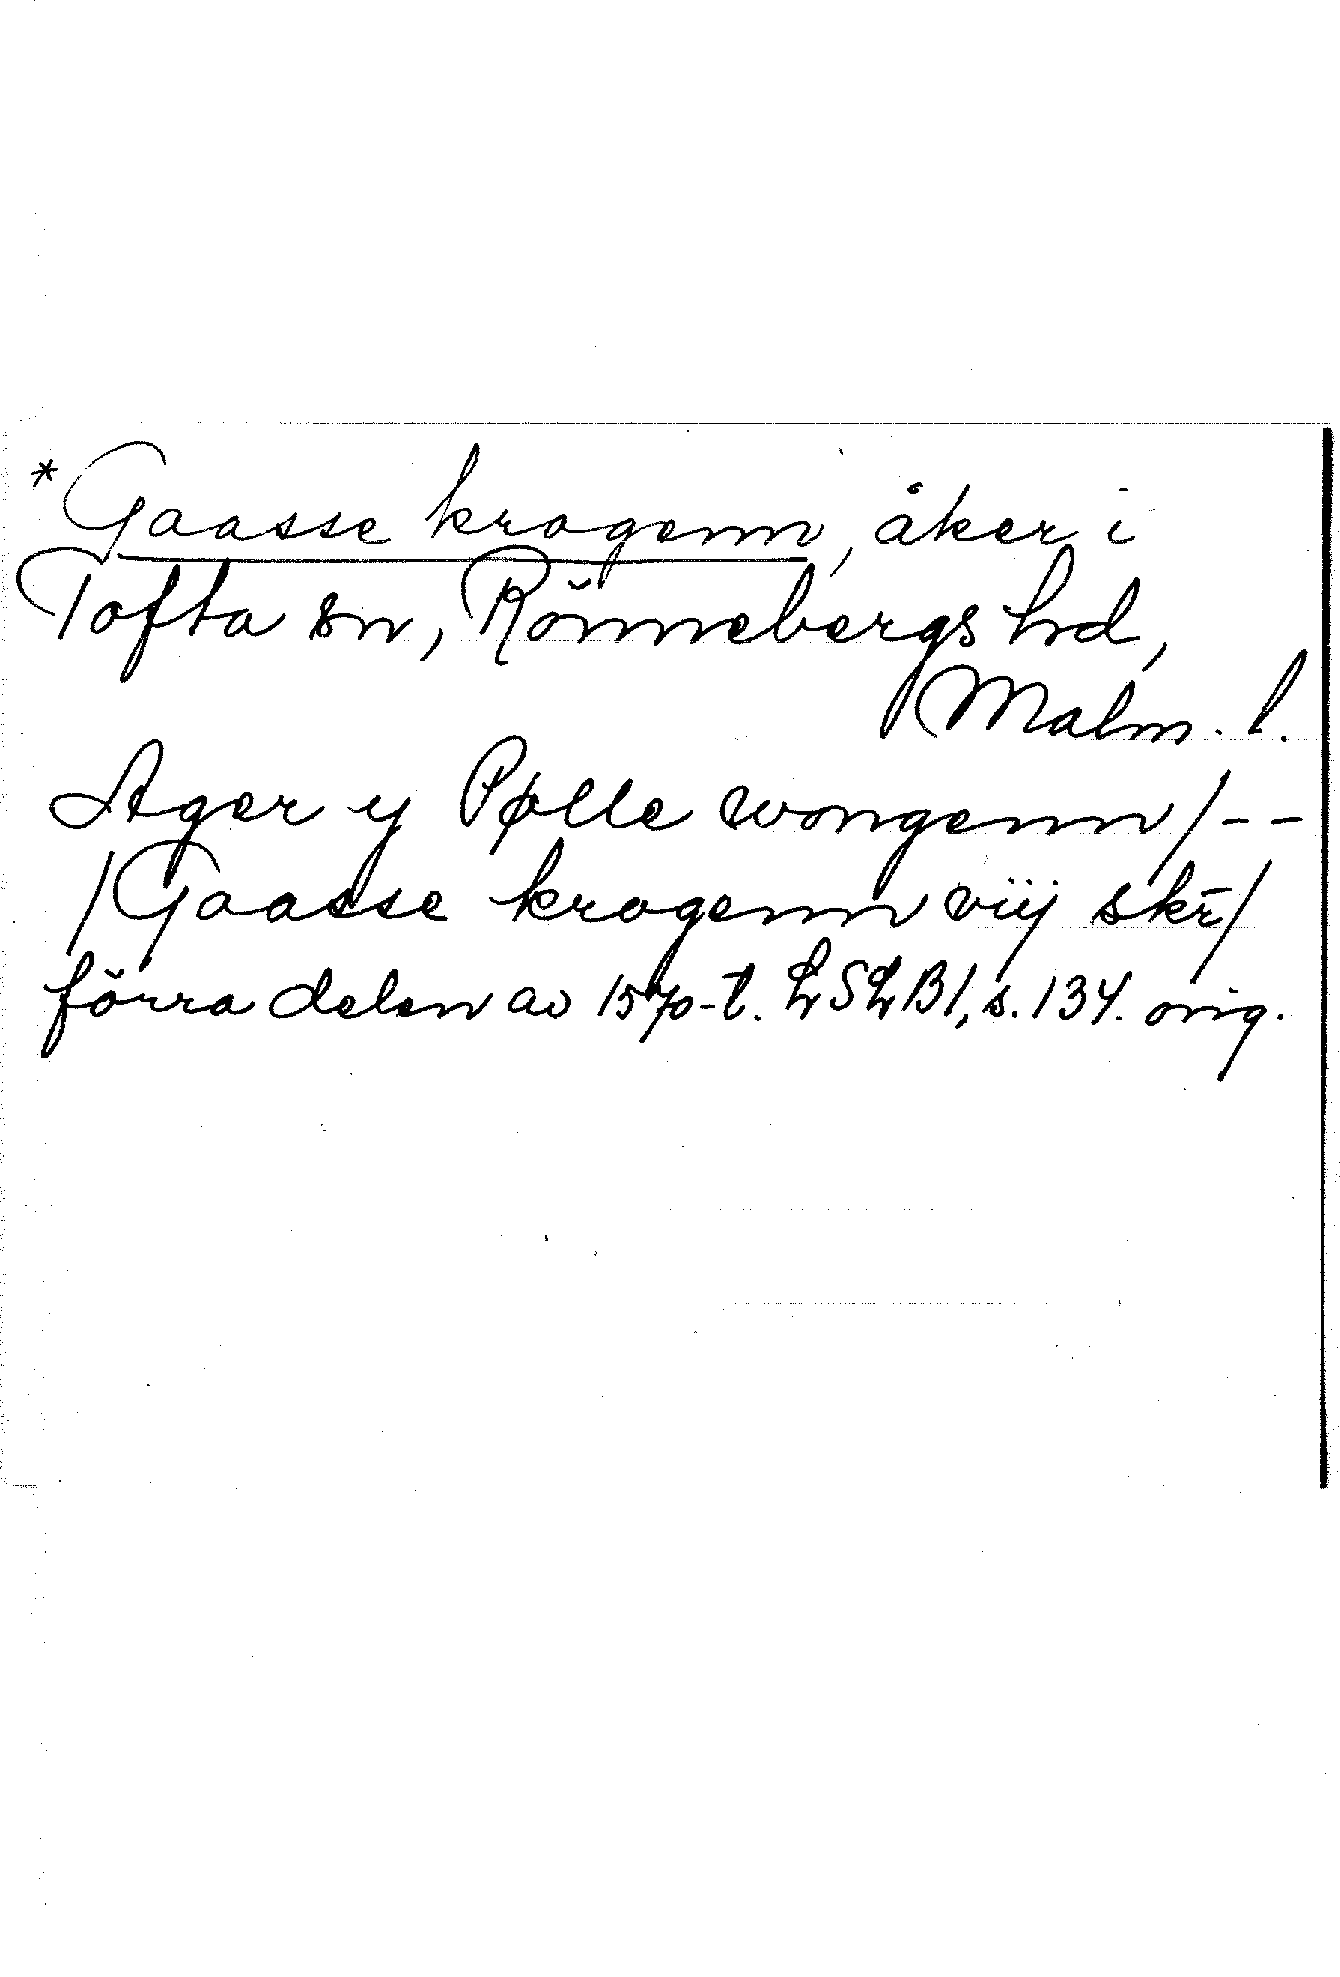 *Gaasse krogenn, åker i
Tofta sn, Rönnebergs hd,
Malm. l.
Ager y Pølle wongenn/--
/Gaasse krogenn viij skr̄/
förra delen av 1570-t. LSLB1, s. 134. orig.